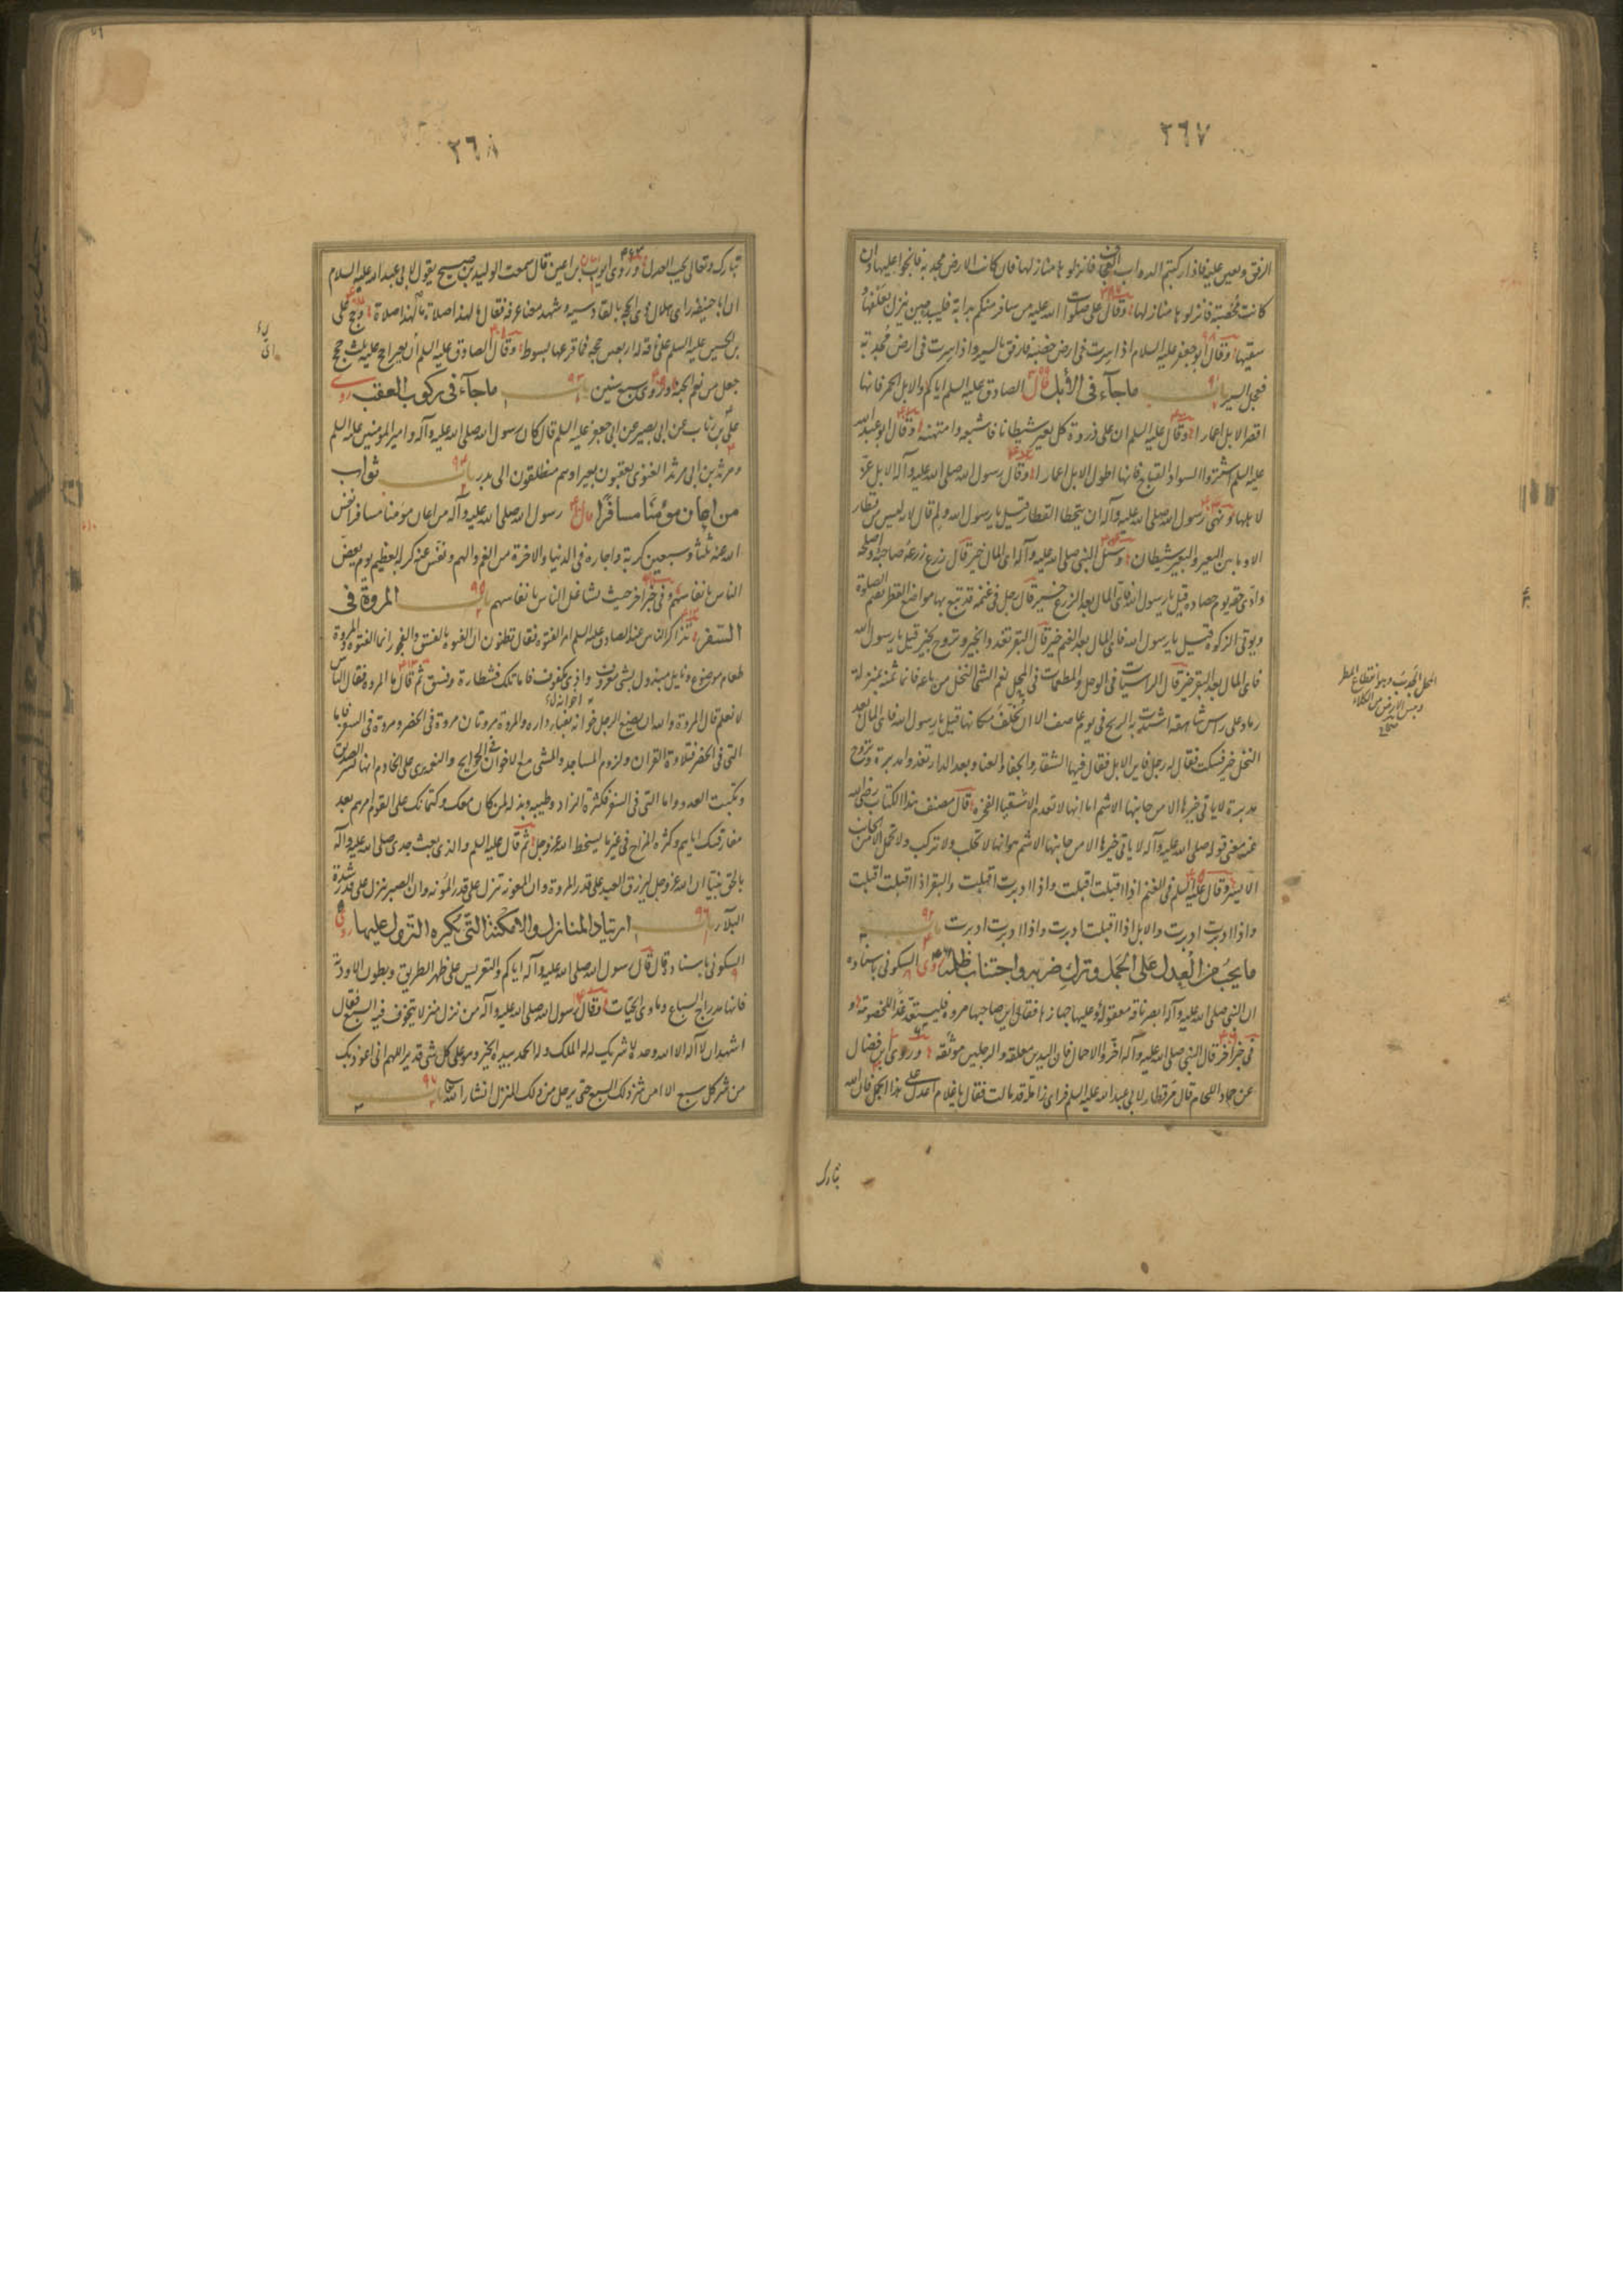 ٢٦٧
الرفق ويعين عليه فاذا ركبتم الدواب العجف فانزلوها منازلها فان كانت الارض مجدبة فانجوا عليها وان
كانت مخصبة فانزلوها منازلها وقال علي صلوات الله عليه من سافر منكم بدابة فليبدء حين ينزل بعلفها و
سقيها وقال ابو جعفر عليه السلام اذا سرت في ارض خصبة فارفق بالسير واذا سرت في ارض مجدبة
فعجل السير باب ماجآء في الأبل قال الصادق عليه السلم اياكم والابل الحمر فانها
اقصر الابل اعمارا وقال عليه السلم ان على ذروة كل بعير شيطانا فاشبعه وامتهنه وقال ابو عبد الله
عليه السلم اشتروا السواد القباح فانها اطول الابل اعمارا وقال رسول الله صلى الله عليه وآله الابل عز
لاهلها ونهى رسول الله صلى الله عليه وآله ان يتخطا القطار قيل يا رسول الله ولم قال لانه ليس من قطار
الا وما بين البعير والبعير شيطان وسئل النبي صلى الله عليه وآله اي المال خير قال زرع زرعه صاحبه واصلحه
وادى حقه يوم حصاده قيل يا رسول الله فاي المال بعد الزرع خير قال رجل في غنمه قد تبع بها مواضع القطر يقيم الصلوة
ويؤتى الزكوة قيل يا رسول الله فاي المال بعد الغنم خير قال البقر تغدو بخير وتروح بخير قيل يا رسول الله
فاي المال بعد البقر خير قال الراسيات في الوحل والمطعمات في المحل نعم الشئ النخل من باعه فانما ثمنه بمنزلة
رماد على راس شاهقة اشتدت به الريح في يوم عاصف الا ان يخلف مكانها قيل يا رسول الله فاي المال بعد
النخل خير فسكت فقال له رجل فاين الابل فقال فيها الشقاء والجفاء والعنا وبعد الدار تغدو مدبرة وتروح
مدبرة لا ياتي خيرها الا من جانبها الاشم اما انها لا تعدم الاشقياء الفجرة قال مصنف هذا الكتاب رضي الله
عنه معنى قوله صلى الله عليه وآله لا ياتي خيرها الا من جانبها الاشم هو انها لا تحلب ولا تركب ولا تحمل الا من الجانب
الايسر وقال عليه السلم في الغنم اذا اقبلت اقبلت واذا ادبرت اقبلت والبقر اذا اقبلت اقبلت
واذا ادبرت ادبرت والابل اذا اقبلت ادبرت واذا ادبرت ادبرت باب
ما يجب من العدل على الجمل وترك ضربه واجتناب ظلمه روى السكوني باسناده
ان النبي صلى الله عليه وآله ابصر ناقة معقولة وعليها جهازها فقال اين صاحبها مروه فليستعد غدا للخصومة و
في خبر آخر قال النبي صلى الله عليه وآله اخروا الاحمال فان اليدين معلقة والرجلين موثقة وروى ابن فضال
عن حماد اللحام قال مر قطار لابي عبد الله عليه السلم فراى زاملة قد مالت فقال يا غلام اعدل على هذا الجمل فان الله
تبارك
المحل الجدب وهو انقطاع المطر
ويبس الارض من الكلاء
صح
٢٦٨
تبارك وتعالى يحب العدل وروى ايوب بن اعين قال سمعت الوليد بن صبيح يقول لابي عبد الله عليه السلام
ان ابا حنيفة راى هلال ذى الحجة بالقادسية وشهد معنا عرفة فقال ما لهذا صلاة ما لهذا صلاة وحج علي
بن الحسين عليه السلم على ناقة له اربعين حجة فما قرعها بسوط وقال الصادق عليه السلم اي بعير حج عليه ثلث حجج
جعل من نعم الجنة وروى سبع سنين باب ماجآء في ركوب العقب روى
علي بن رئاب عن ابى بصير عن ابى جعفر عليه السلم قال كان رسول الله صلى الله عليه وآله وامير المؤمنين عليه السلم
ومرثد بن ابى مرثد الغنوى يعتقبون بعيرا وهم منطلقون الى بدر باب ثواب
من اعان مؤمنا مسافرا قال رسول الله صلى الله عليه وآله من اعان مؤمنا مسافرا نفس
الله عنه ثلثا وسبعين كربة واجاره في الدنيا والاخرة من الغم والهم ونفس عنه كربه العظيم يوم يعض
الناس بانفاسهم وفي خبر اخر حيث تشاغل الناس بانفاسهم باب المروة في
السفر تذاكر الناس عند الصادق عليه السلم امر الفتوة فقال تظنون ان الفتوة بالفسق والفجور انما الفتوة والمروة
طعام موضوع ونايل مبذول بشئ معروف واذى مكفوف فاما تلك فشطارة وفسق ثم قال ما المروة فقال الناس
لا نعلم قال المروة والله ان يضع الرجل خوانه بفناء داره والمروة مروتان مروة في الحضر ومروة في السفر فاما
التي في الحضر فتلاوة القران ولزوم المساجد والمشي مع الاخوان في الحوايج والنعمة ترى على الخادم انها تسر الصديق
وتكبت العدو واما التي في السفر فكثرة الزاد وطيبه وبذله لمن كان معك وكتمانك على القوم امرهم بعد
مفارقتك اياهم وكثرة المزاح في غير ما يسخط الله عز وجل ثم قال عليه السلم والذى بعث جدى صلى الله عليه وآله
بالحق نبيا ان الله عز وجل ليرزق العبد على قدر المروة وان المعونة تنزل على قدر المؤنة وان الصبر ينزل على قدر شدة
البلآء باب ارتياد المنازل والامكنة التي يكره النزول عليها روى
السكوني باسناده قال قال رسول الله صلى الله عليه وآله اياكم والتعريس على ظهر الطريق وبطون الاودية
فانها مدارج السباع وماوى الحيات وقال رسول الله صلى الله عليه وآله من نزل منزلا يتخوف فيه السبع فقال
اشهد ان لا اله الا الله وحده لا شريك له له الملك وله الحمد بيده الخير وهو على كل شئ قدير اللهم اني اعوذ بك
من شر كل سبع الا امن شر ذلك السبع حتى يرحل من ذلك المنزل انشاء الله باب